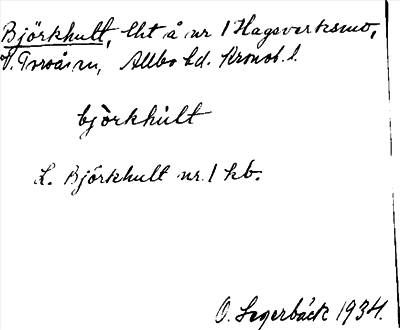 Björkhult, lht å nr 1 Hagsverksmo,
V. Torsås sn, Allbo hd. Kronob. l.
bjò̀rkhùlt
L. Björkhult nr. 1 kb.
O. Segerbäck 1934.